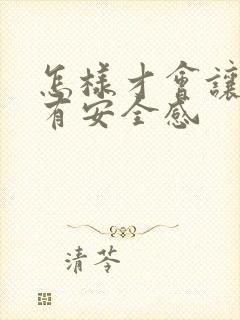 怎樣才會讓
有安全感
清苓